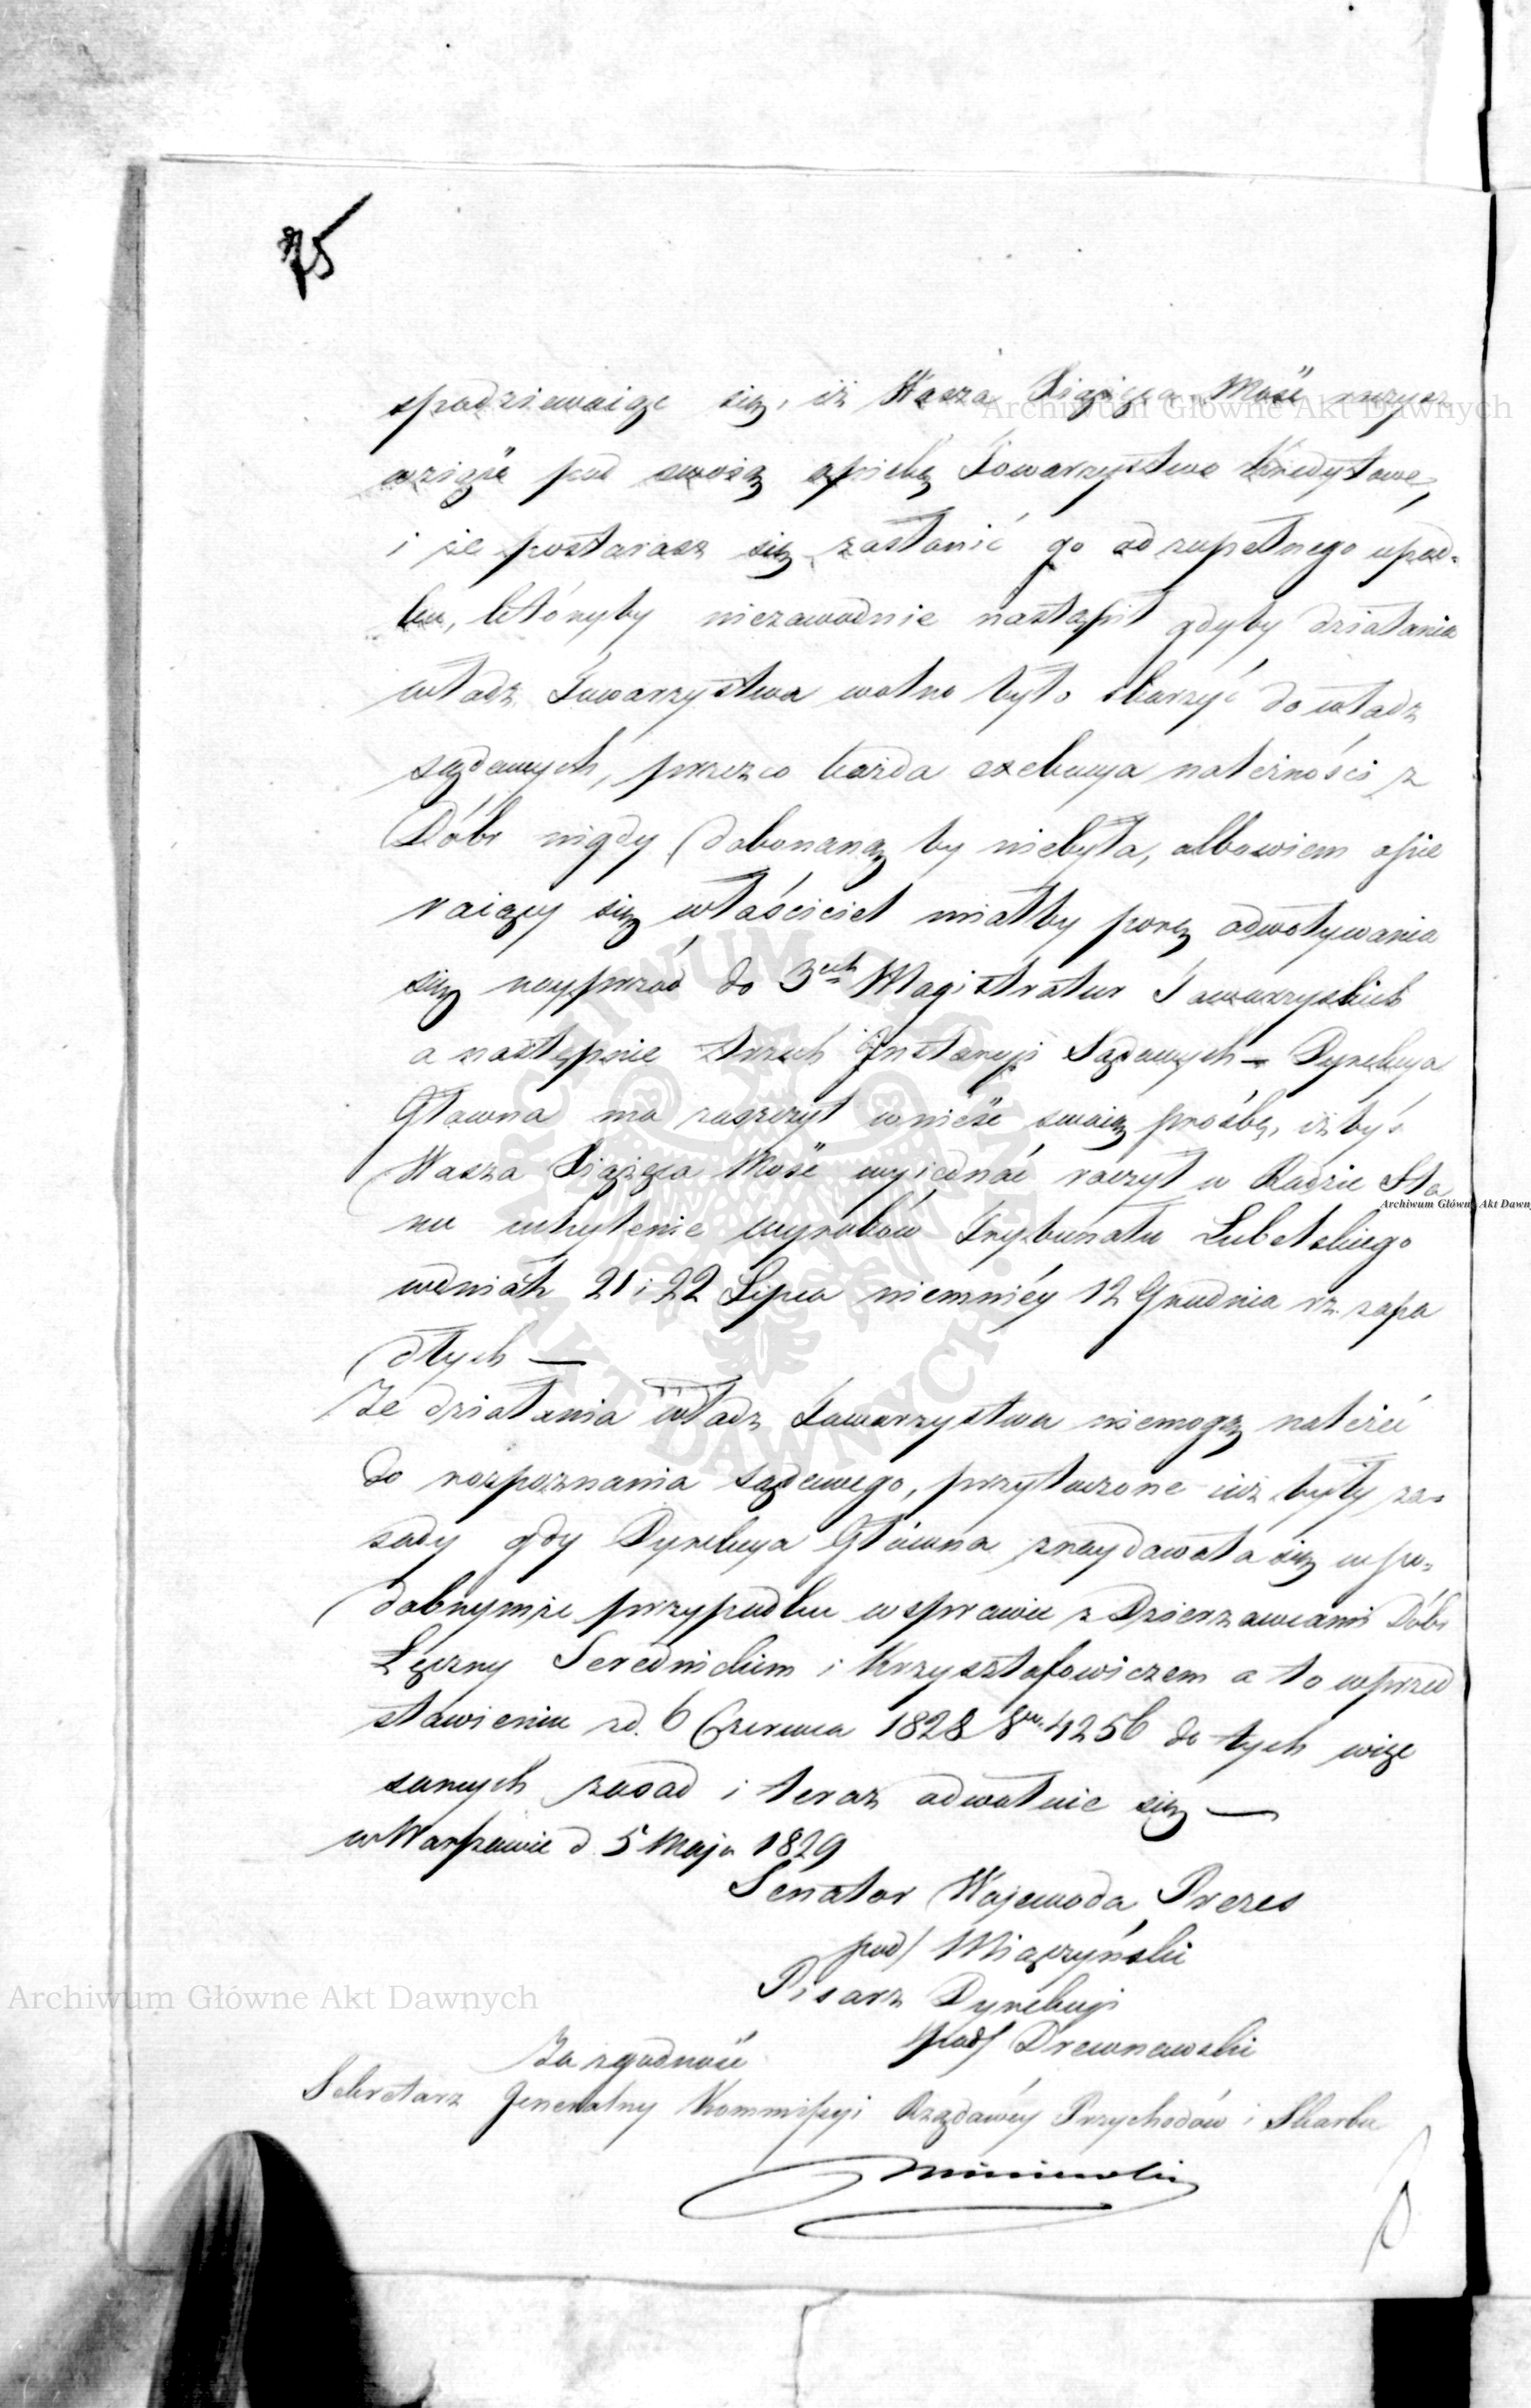 75
spodziewaiąc się, iż Wasza Xiążęca Mość raczysz
wziąść pod swoią opiekę Towarzystwo Kredytowe,
i że postarasz się zasłonić go od zupełnego upad-
ku, któryby niezawodnie nastąpił gdyby działania
władz Towarzystwa wolno było skarżyć do władz
sądowych, przezco każda exekucya należności z
Dóbr nigdy dokonaną by niebyła, albowiem opie
raiący się właściciel miałby porę odwoływania
się nayprzód do 3ech Magistratur Towarzyskich
a następnie trzech Instancyi Sądowych – Dyrekcya
Główna ma zaszczyt wnieść swoią prośbę, iżbyś
Wasza Xiążęca Mość wyiednać raczył w Radzie Sta
nu uchylenie wyroków Trybunału Lubelskiego
wdniach 21 i 22 Lipca niemniéy 12 Grudnia r.z. zapa
dłych —
Że działania władz Towarzystwa niemogą należeć
do rozpoznania sądowego, przytoczone iuż były za-
sady gdy Dyrekcya Główna znaydowała się w po-
dobnymże przypadku wsprawie z Dzierżawcami Dóbr
Łęczny Serednickim i Krzysztofowiczem a to wprzed
stawieniu zd. 6 Czerwca 1828 4256 do tych więc
samych zasad i teraz odwołuie się —
w Warszawie d 5 Maja 1829
Senator Wojewoda Prezes
pod/ Miączyński
Pisarz Dyrekcyi
pod/ Drewnowski
Za zgodność
Sekretarz Jeneralny Kommissyi Rządowéy Przychodów i Skarbu
Archiwum Główne Akt Dawnych
Archiwum Główne Akt Dawn
Archiwum Główne Akt Dawnych
ARCHIWUM GŁÓWNE AKT DAWNYCH